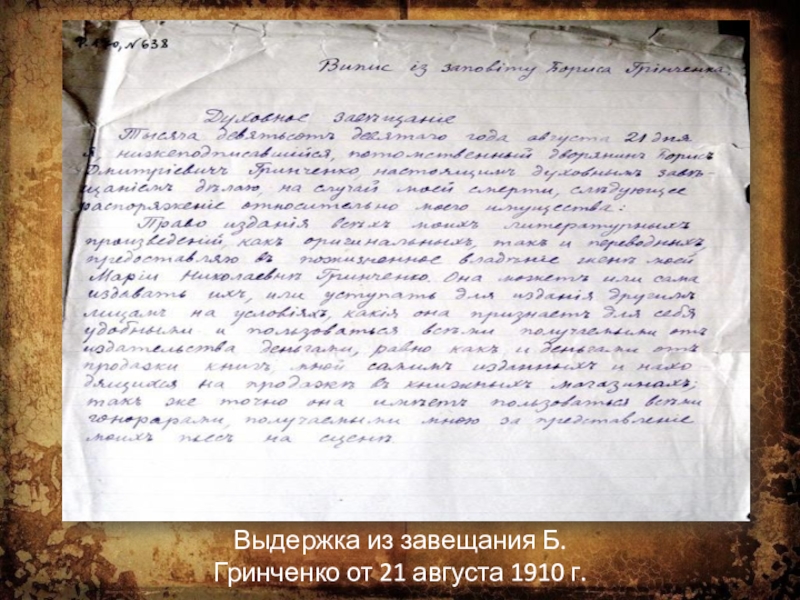 Р. 170, N 638
Випис із заповіту Бориса Грінченка.
Духовное завѣщание
Тысяча девятьсотъ десятаго года августа 21 дня
я, нижеподписавшійся, потомственный дворянинъ Борисъ
Дмитріевичъ Гринченко, настоящимъ духовнымъ завѣ-
щаніемъ дѣлаю, на случай моей смерти, слѣдующее
распоряженіе относительно моего имущества:
Право изданія всѣхъ моихъ литературныхъ
произведеній, какъ оригинальныхъ, такъ и переводныхъ,
предоставляю въ пожизненное владѣніе женѣ моей
Маріи Николаевнѣ Гринченко. Она можетъ или сама
издавать ихъ, или уступать для изданія другимъ
лицамъ на условіяхъ, какія она признаетъ для себя
удобными и пользоваться всѣми получаемыми отъ
издательства деньгами, равно какъ и деньгами отъ
продажи книгъ, мной самимъ изданныхъ и нахо-
дящихся на продажѣ въ книжныхъ магазинахъ;
такъ же точно она имѣетъ пользоваться всѣми
гонорарами, получаемыми мною за представленіе
моихъ пьесъ на сценѣ.
Выдержка из завещания Б.
Гринченко от 21 августа 1910 г.